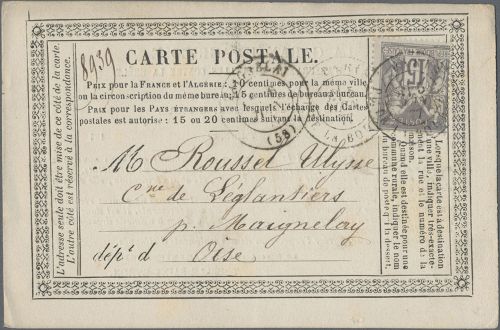 CARTE POSTALE.
8939
PRIX pour la FRANCE et l'ALGÉRIE : 10 centimes pour la même ville
ou la circonscription du même bureau, 15 centimes de bureau à bureau.
PRIX pour les PAYS ÉTRANGERS avec lesquels l'échange des Cartes
postales est autorisé : 15 ou 20 centimes suivant la destination.
L'adresse seule doit être mise de ce côté de la carte.
L'autre côté est réservé à la correspondance.
15
(58)
M. Roussel Ulyne
Cne de Léglantiers
p. Maignelay
dépt d Oise
Lorsque la carte est à destination
d'une ville, indiquer très-exacte-
ment la rue et le numéro de la
maison.
Quand elle est destinée pour une
commune rurale, indiquer le nom
du bureau de poste qui la dessert.